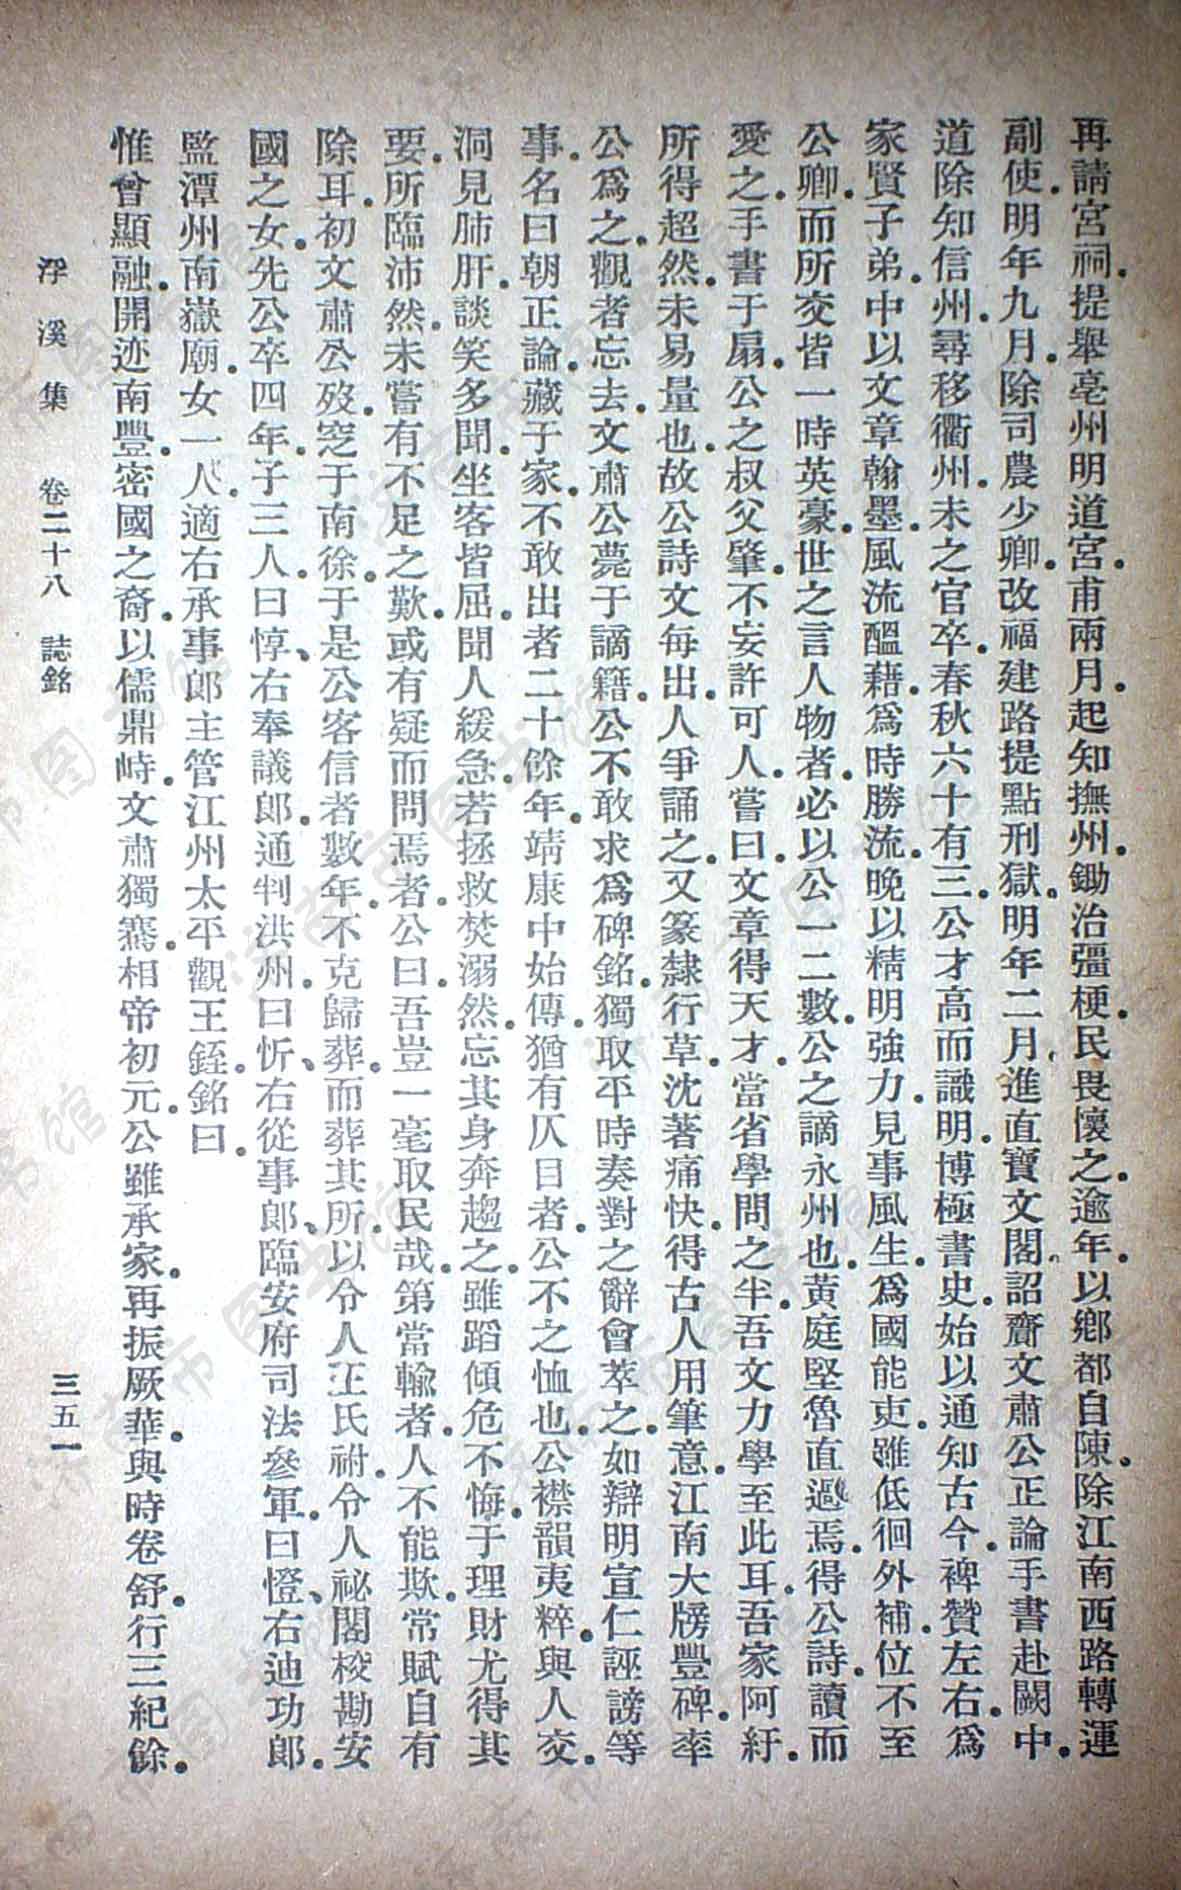 再請宮祠。提舉亳州明道宮。甫兩月。起知撫州。鋤治彊梗。民畏懷之。逾年。以鄉都自陳。除江南西路轉運
副使。明年九月。除司農少卿。改福建路提點刑獄。明年二月。進直寶文閣。詔齎文肅公正論手書赴闕。中
道除知信州。尋移衢州。未之官卒。春秋六十有三。公才高而識明。博極書史。始以通知古今。裨贊左右。爲
家賢子弟。中以文章翰墨。風流醞藉。爲時勝流。晚以精明強力。見事風生。爲國能吏。雖低徊外補。位不至
公卿。而所交皆一時英豪。世之言人物者。必以公一二數。公之謫永州也。黃庭堅魯直過焉。得公詩。讀而
愛之。手書于扇。公之叔父肇。不妄許可人。嘗曰。文章得天才。當省學問之半。吾文力學至此耳。吾家阿紆。
所得超然。未易量也。故公詩文每出。人爭誦之。又篆隸行草。沈著痛快。得古人用筆意。江南大牓豐碑。率
公爲之。觀者忘去。文肅公薨于謫籍。公不敢求爲碑銘。獨取平時奏對之辭會萃之。如辯明宣仁誣謗等
事。名曰朝正論。藏于家。不敢出者二十餘年。靖康中始傳。猶有仄目者。公不之恤也。公襟韻夷粹。與人交。
洞見肺肝。談笑多聞。坐客皆屈。聞人緩急。若拯救焚溺然。忘其身奔趨之。雖蹈傾危不悔。于理財尤得其
要。所臨沛然。未嘗有不足之歎。或有疑而問焉者。公曰。吾豈一毫取民哉。第當輸者。人不能欺。常賦自有
除耳。初文肅公歿。窆于南徐。于是公客信者數年。不克歸葬。而葬其所。以令人王氏祔。令人祕閣校勘安
國之女。先公卒四年。子三人。曰惇、右奉議郎。通判洪州。曰忻、右從事郎、臨安府司法參軍。曰憕、右迪功郎。
監潭州南嶽廟。女一人。適右承事郎主管江州太平觀王銍。銘曰。
惟曾顯融。開迹南豐。密國之裔。以儒鼎峙。文肅獨騫。相帝初元。公雖承家。再振厥華。與時卷舒。行三紀餘。
浮溪集 卷二十八 誌銘 三五一